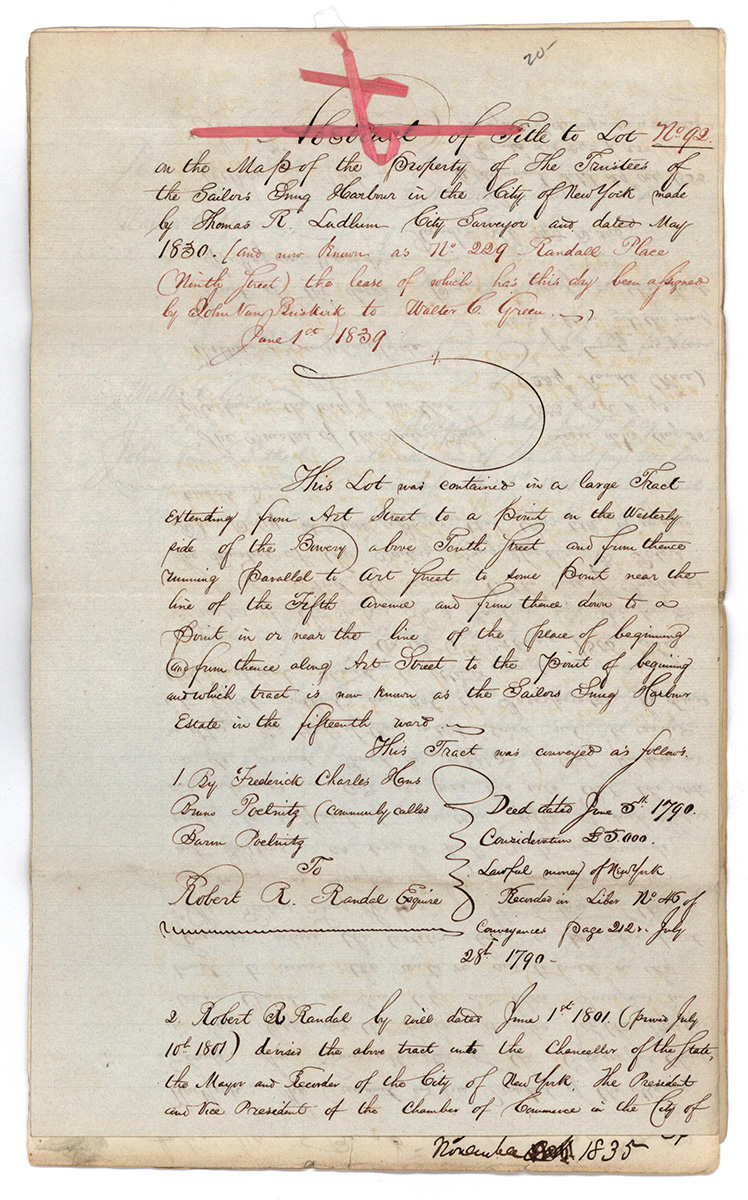 20-
Abstract of Title to Lot No 92.
on the Map of the Property of the Trustees of
the Sailors Snug Harbour in the City of New York made
by Thomas R. Ludlum City Surveyor and dated May
1830. (and now known as No 229 Randall Place
(Ninth Street) the lease of which has this day been assigned
by John Van Buskirk to Walter C. Green.
June 1st 1839
This Lot was contained in a large Tract
Extending from Art Street to a Point on the Westerly
side of the Bowery above Tenth Street and from thence
running Parallel to Art Street to some Point near the
line of the Fifth Avenue and from thence down to a
Point in or near the line of the place of beginning
and from thence along Art Street to the Point of begining
and which tract is now known as the Sailors Snug Harbour
Estate in the fifteenth ward.
This Tract was conveyed as follows.
1. By Frederick Charles Hans
Bruno Poelnitz (commonly called
Baron Poelnitz
To
Robert R. Randal Esquire
Deed dated June 5th 1790.
Consideration £5.000.
Lawful money of New York
Recorded in Liber No 46 of
Conveyances page 212. July
28th 1790-
2. Robert R Randal by will dated June 1st 1801. (proved July
10th 1801) devised the above tract unto the Chancellor of the State,
the Mayor and Recorder of the City of New York. The President
and Vice President of the Chamber of Commerce in the City of
November 1835-